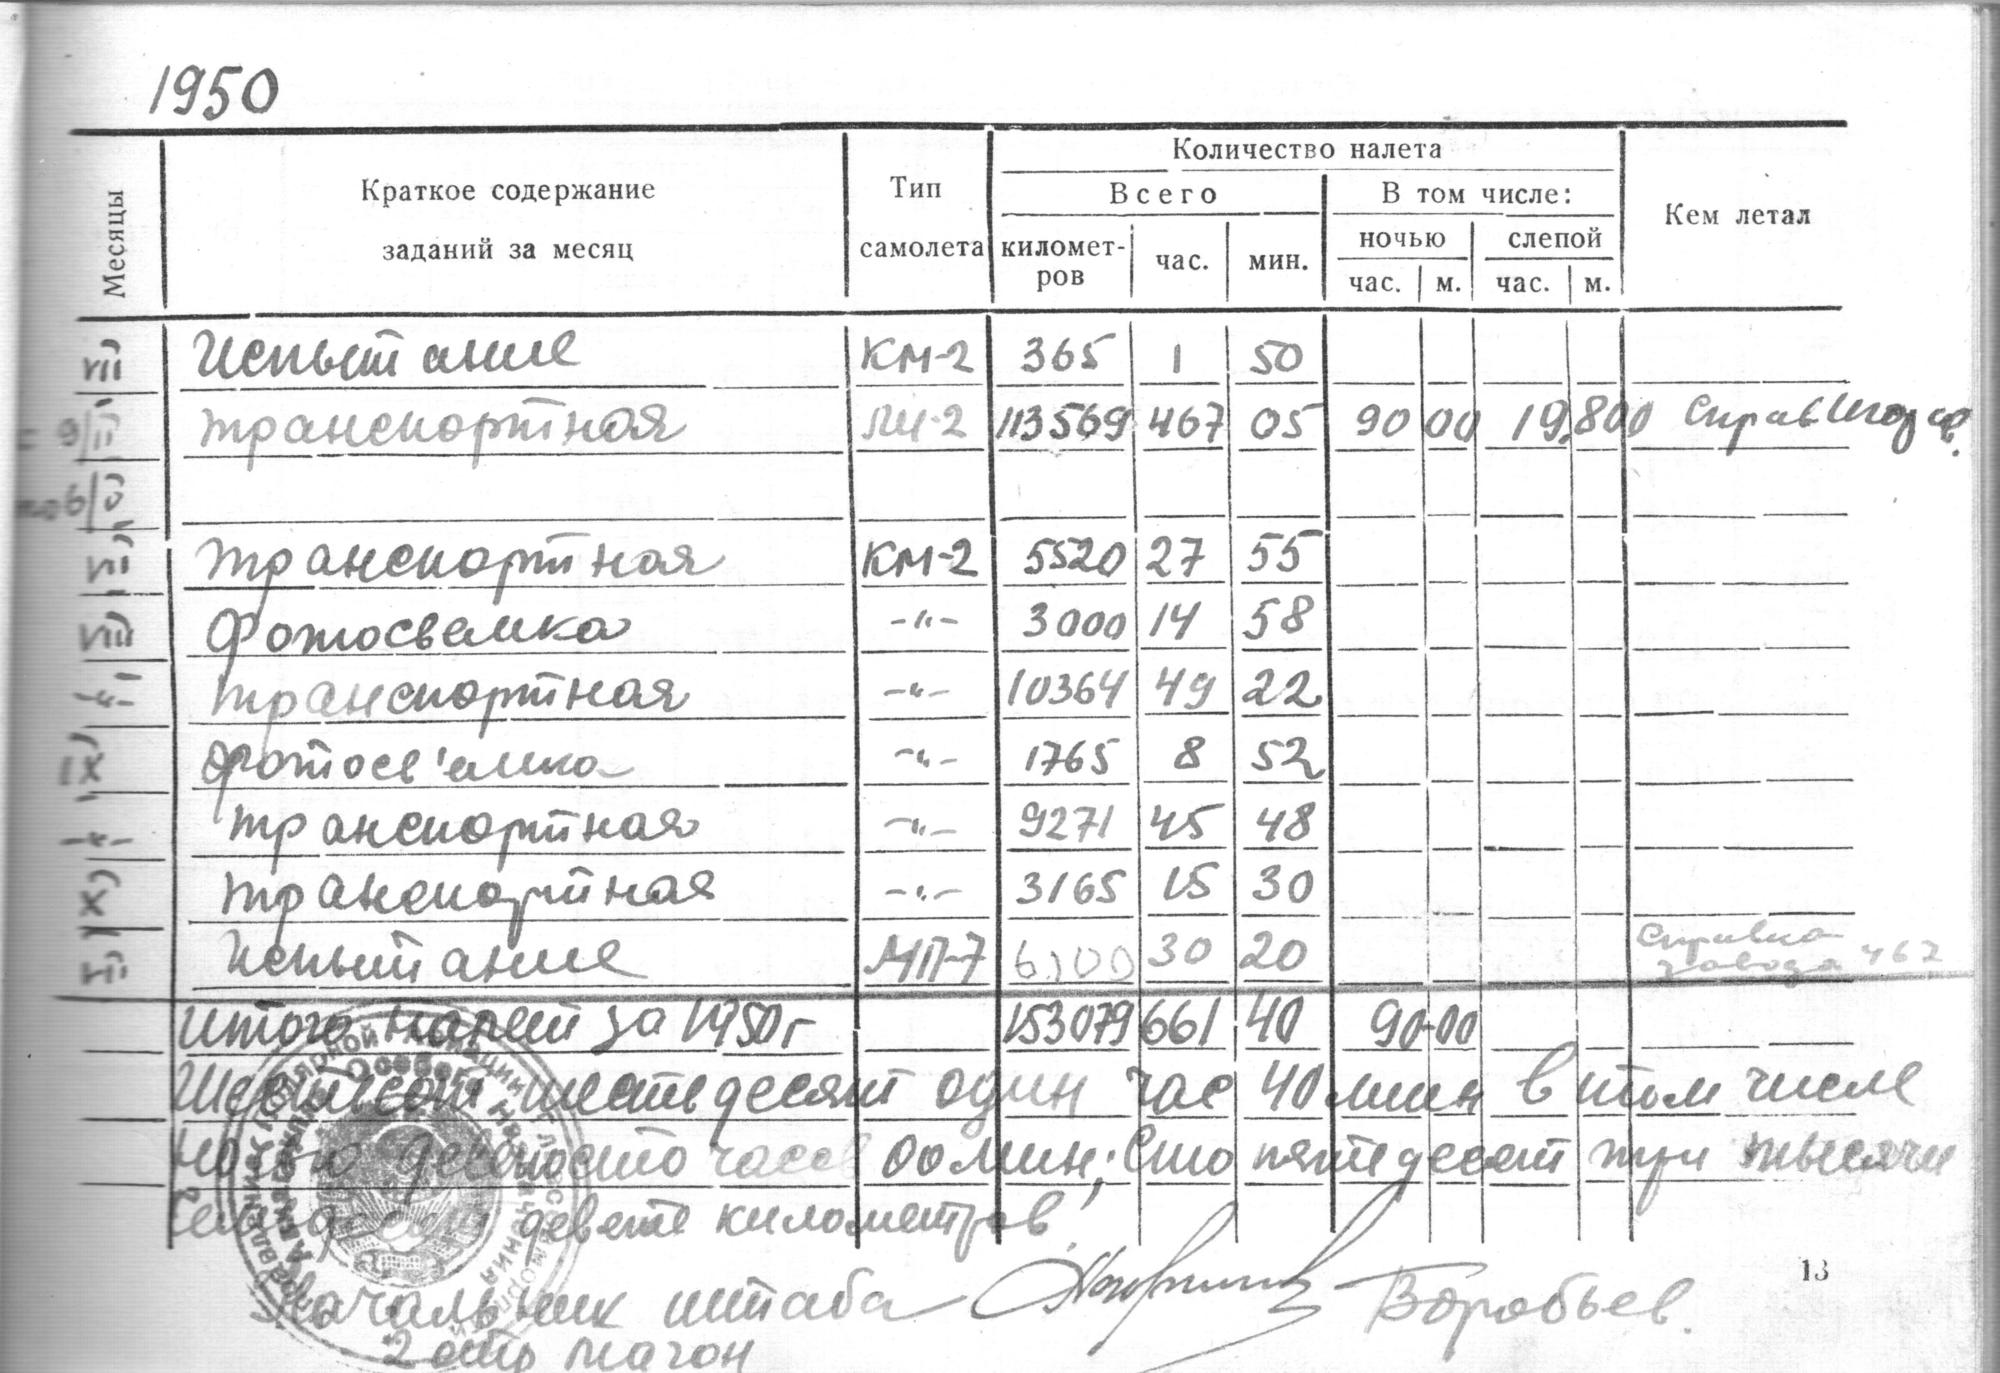 1950
Месяцы
Краткое содержание заданий за месяц
Тип самолета
Количество налета
Всего
В том числе:
Кем летал
километ-ров час. мин.
ночью слепой
час. м. час. м.
VII Испытание КМ-2 365 1 50
транспортная ЛИ-2 113569 467 05 90 00 19,800
VII транспортная КМ-2 5520 27 55
VIII Фотосвемка -"- 3000 14 58
-"- транспортная -"- 10364 49 22
IX Фотосв'емка -"- 1765 8 52
-"- транспортная -"- 9271 45 48
X транспортная -"- 3165 15 30
Испытание МП-7 30 20 Справка завода 467
Итого налет за 1950г 153079 661 40 90-00
Шестьсот шестьдесят один час 40 мин в том числе
ночью девяносто часов 00 мин; Сто пятьдесят три тысячи
девять километров
Начальник штаба Воробьев.
13